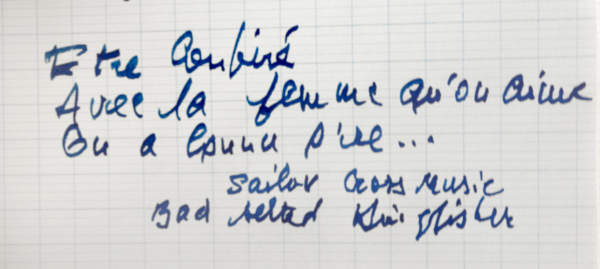 Etre Confiné
Avec la femme qu'on aime
On a connu pire...
Sailor Cross Music
Bad belted Kingfisher